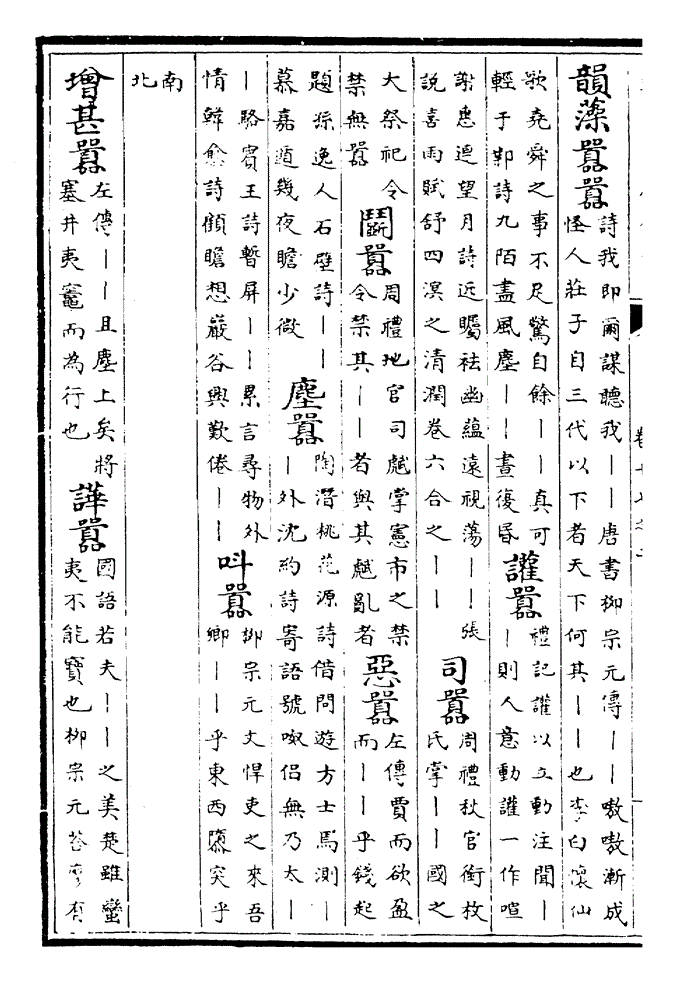 韻藻囂囂詩我即爾謀聽我｜｜唐書柳宗元傳｜｜嗷嗷漸成
怪人莊子自三代以下者天下何其｜｜也李白懷仙
歌堯舜之事不足驚自餘｜｜真可
輕于鄴詩九陌盡風塵｜｜晝復昏
讙囂禮記讙以立動注聞｜
｜則人意動讙一作喧
謝惠連望月詩近矚祛幽蘊遠視蕩｜｜張
說喜雨賦舒四溟之清潤卷六合之｜｜
司囂周禮秋官銜枚
氏掌｜｜國之
大祭祀令
禁無囂
鬭囂周禮地官司虣掌憲市之禁
令禁其｜｜者與其虣亂者
惡囂左傳賈而欲盈
而｜｜乎錢起
題孫逸人石壁詩｜｜
慕嘉遁幾夜瞻少微
塵囂陶潛桃花源詩借問遊方士焉測｜
｜外沈約詩寄語號呶侣無乃太｜
｜駱賓王詩暫屏｜｜累言尋物外
情韓愈詩顧瞻想巖谷興歎倦｜｜
叫囂柳宗元文悍吏之來吾
鄉｜｜乎東西隳突乎
南
北
增甚囂左傳｜｜且塵上矣將
塞井夷竈而為行也
譁囂國語若夫｜｜之美楚雖蠻
夷不能寶也柳宗元荅有